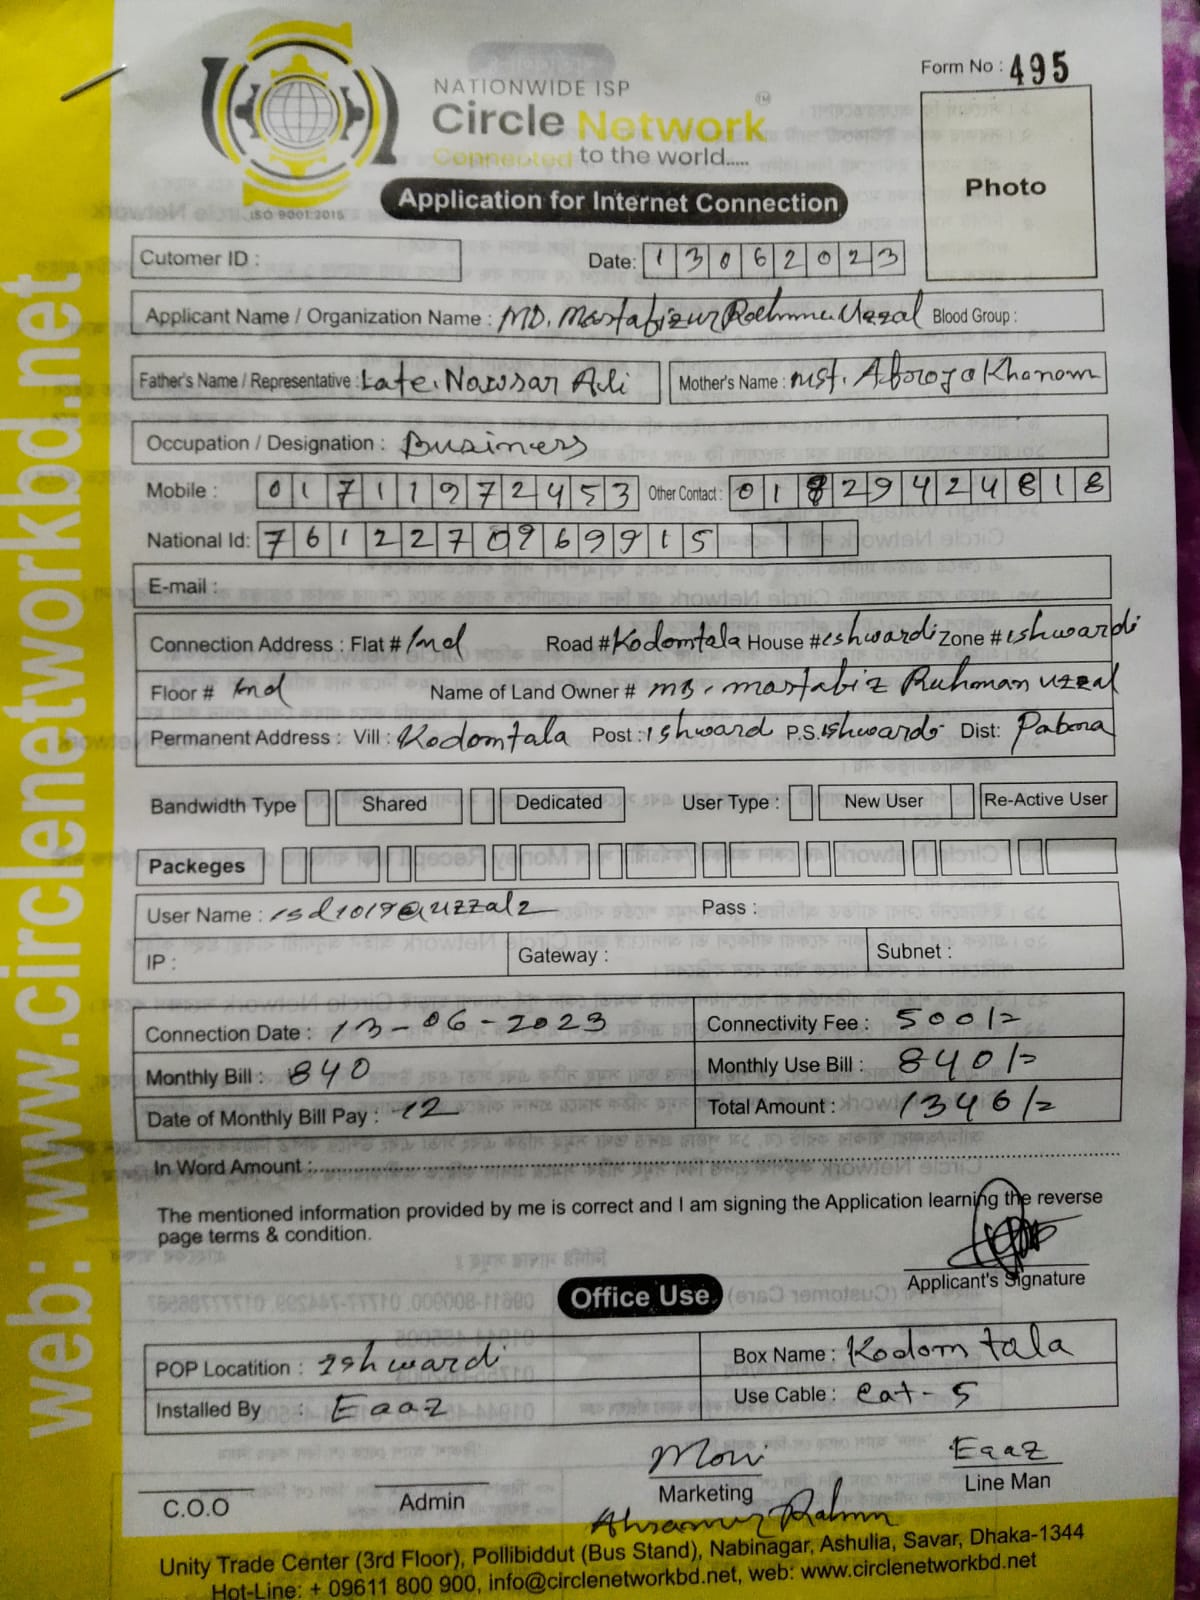 Form No : 495
NATIONWIDE ISP
Circle Network TM
Connected to the world.....
ISO 9001:2015
Application for Internet Connection
Photo
Cutomer ID :
Date: 13062023
Applicant Name / Organization Name : MD. Mostafizur Rahman Uzzal Blood Group :
Father's Name / Representative : Late. Nawsar Ali Mother's Name : Mst. Aforoja Khanom
Occupation / Designation : Business
Mobile : 01711972453 Other Contact : 01829424818
National Id: 7612270969915
E-mail :
Connection Address : Flat # 2nd Road # Kodomtala House # ishwardi Zone # ishwardi
Floor # 2nd Name of Land Owner # MD. Mostafiz Ruhman uzzal
Permanent Address : Vill : Kodomtala Post : Ishward P.S. Ishwardi Dist: Pabona
Bandwidth Type Shared Dedicated User Type : New User Re-Active User
Packeges
User Name : isd1019@uzzal2 Pass :
IP : Gateway : Subnet :
Connection Date : 13-06-2023 Connectivity Fee : 500/=
Monthly Bill : 840 Monthly Use Bill : 840/=
Date of Monthly Bill Pay : 12 Total Amount : 1346/=
In Word Amount :
The mentioned information provided by me is correct and I am signing the Application learning the reverse
page terms & condition.
Applicant's Signature
Office Use
POP Locatition : Ishwardi Box Name : Kodom tala
Installed By : Eaaz Use Cable : Cat-5
Moni Eaaz
C.O.O Admin Marketing Line Man
Rahman
Unity Trade Center (3rd Floor), Pollibiddut (Bus Stand), Nabinagar, Ashulia, Savar, Dhaka-1344
Hot-Line: + 09611 800 900, info@circlenetworkbd.net, web: www.circlenetworkbd.net
web: www.circlenetworkbd.net